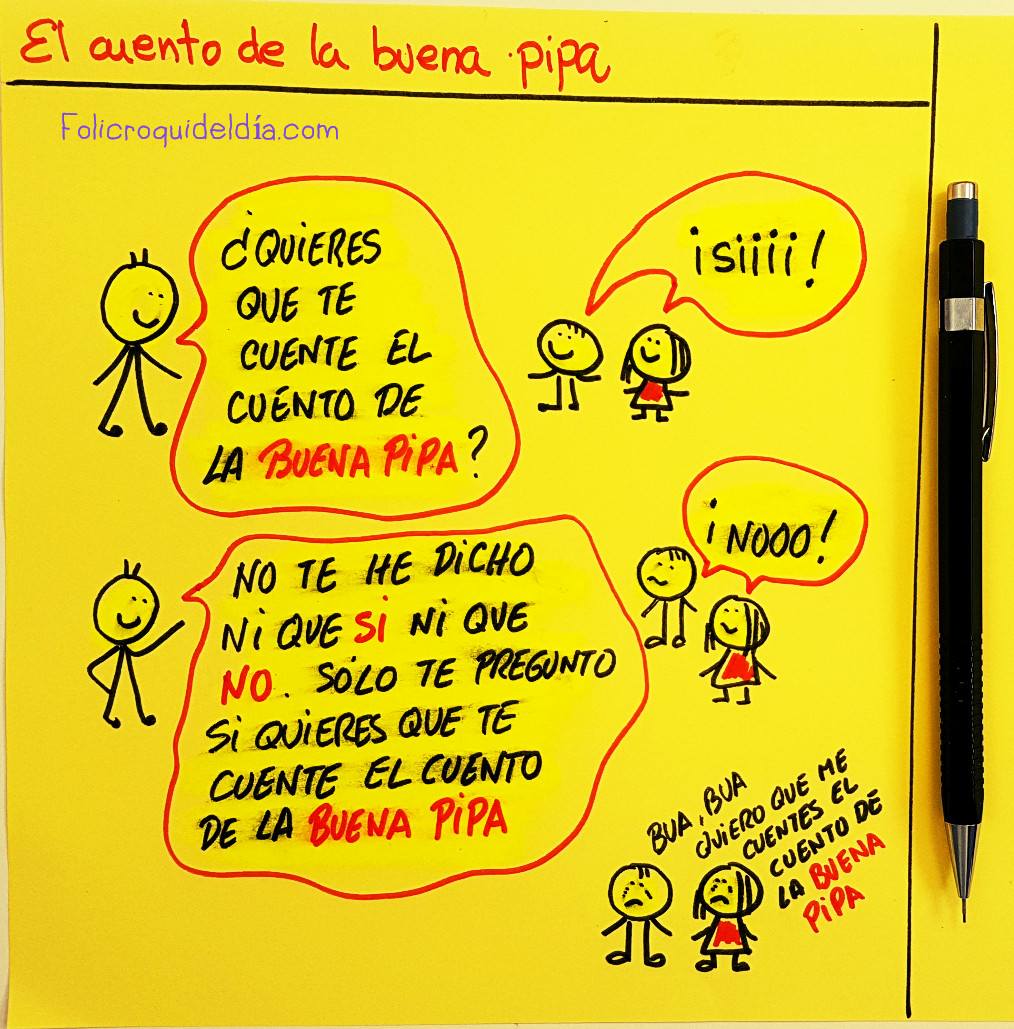 El cuento de la buena pipa
Folicroquideldía.com
¿QUIERES
QUE TE
CUENTE EL
CUENTO DE
LA BUENA PIPA?
¡SIIII!
¡NOOO!
NO TE HE DICHO
NI QUE SI NI QUE
NO. SÓLO TE PREGUNTO
SI QUIERES QUE TE
CUENTE EL CUENTO
DE LA BUENA PIPA
BUA, BUA
QUIERO QUE ME
CUENTES EL
CUENTO DE
LA BUENA
PIPA